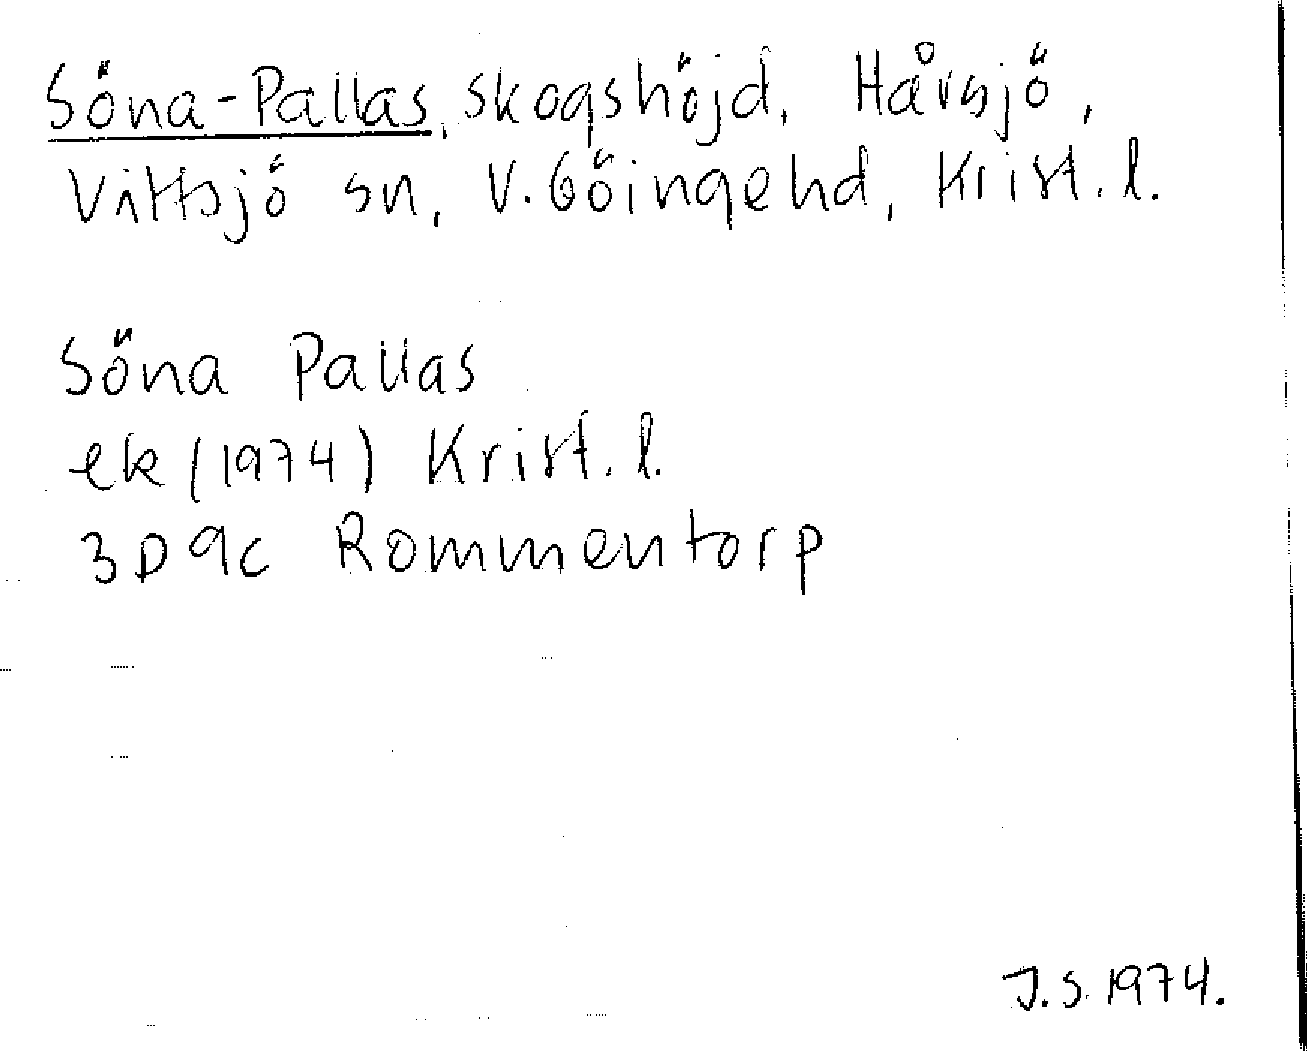 Söna-Pallas, skogshöjd, Hårsjö,
Vittsjö sn, V. Göingehd, Krist. l.
Söna Pallas
ek (1974) Krist. l.
3D9c Rommentorp
J.S. 1974.